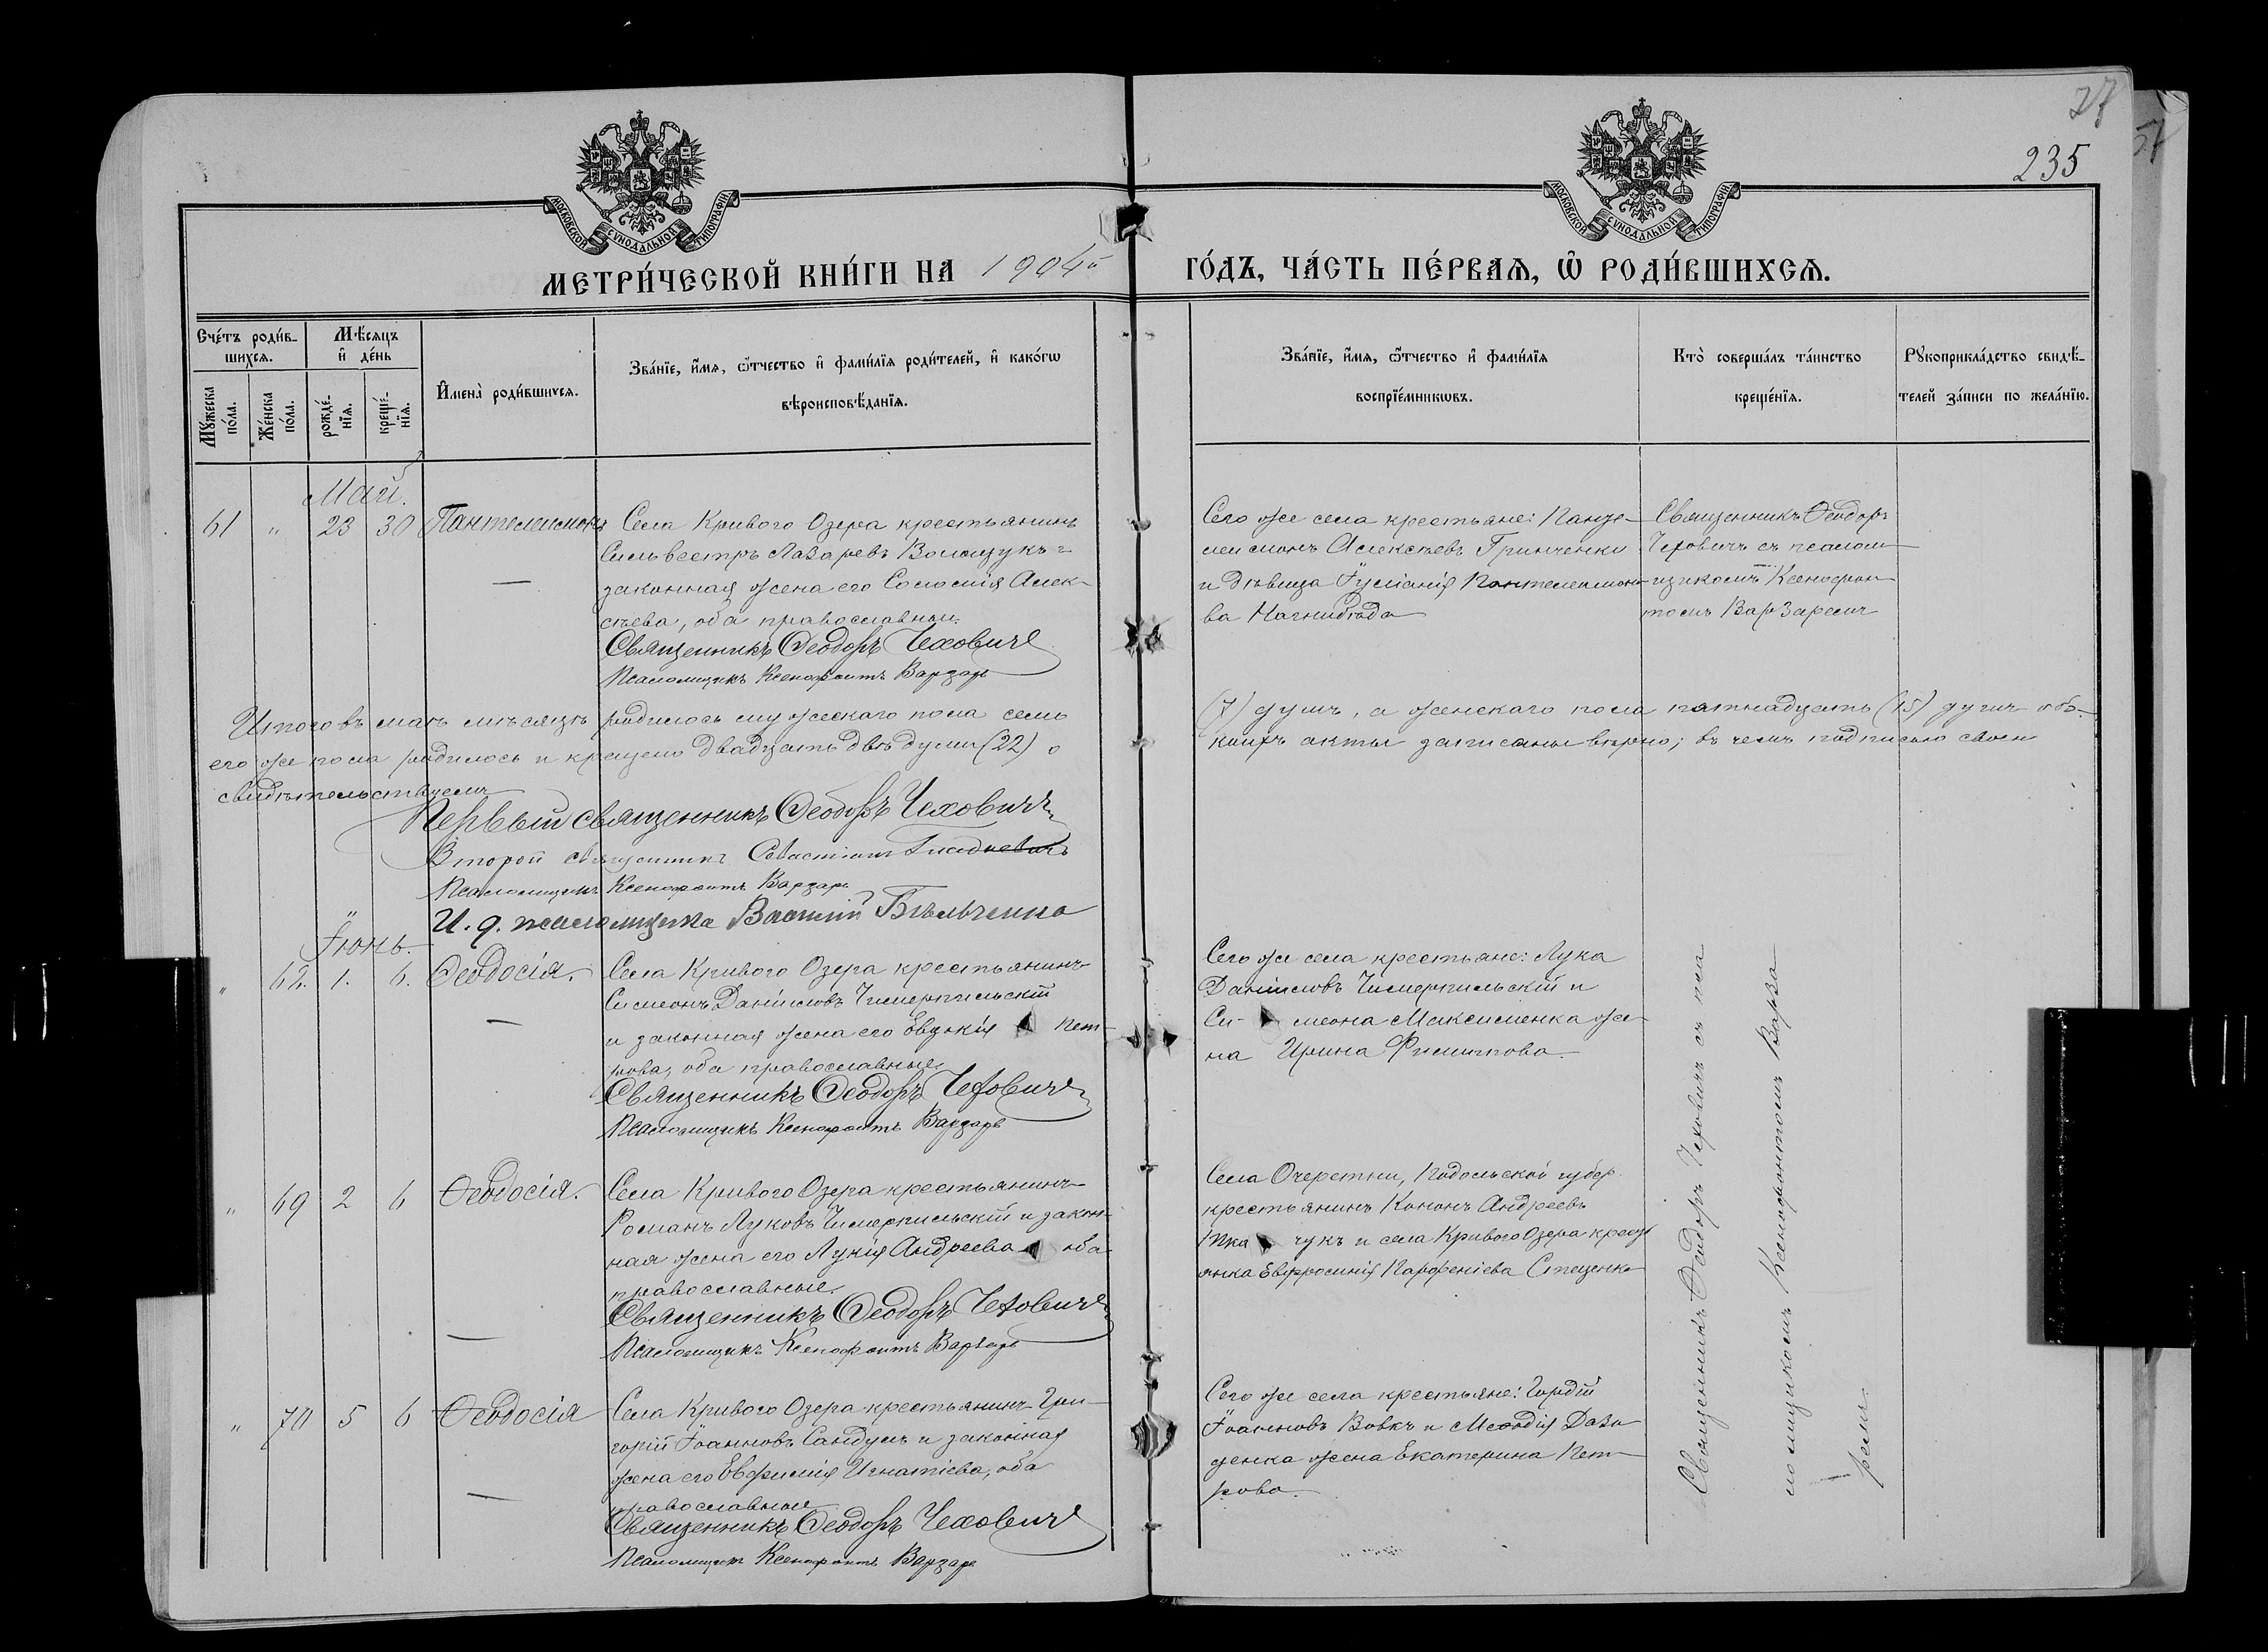 27
235
57
МОСКОВСКОЙ СѴНОДАЛЬНОЙ ТИПОГРАФІИ
МОСКОВСКОЙ СѴНОДАЛЬНОЙ ТИПОГРАФІИ
МЕТРИ́ЧЕСКОЙ КНИ́ГИ НА 1904й ГО́ДЪ, ЧА́СТЬ ПЕ́РВАѦ, Ѡ҆ РОДИ́ВШИХСѦ.
Сче́тъ роди́в-
шихсѧ.
Мѣ́сѧцъ
и҆ де́нь
Му́жеска по́ла.
Же́нска по́ла.
рожде́-
нїѧ.
креще́-
нїѧ.
И҆мена̀ роди́вшихсѧ.
Зва́нїе, и҆́мѧ, ѻ҆́тчество и҆ фами́лїѧ роди́телей, и҆ како́гѡ
вѣроисповѣ́данїѧ.
Зва́нїе, и҆́мѧ, ѻ҆́тчество и҆ фами́лїѧ
воспрїе́мникѡвъ.
Кто̀ соверша́лъ та́инство
креще́нїѧ.
Рꙋкоприкла́дство свидѣ́-
телей за́писи по жела́нїю.
Май.
61 " 23 30 Пантелеимонъ
Села Криваго Озера крестьянинъ
Сильвестръ Лазаревъ Волощукъ и
законная жена его Соломія Алек-
сѣева, оба православные.
Священникъ Ѳеодоръ Чеховичъ
Псаломщикъ Ксенофонтъ Варзарь
Сего же села крестьяне: Панте-
леимонъ Алексѣевъ Гринченко
и дѣвица Іуліанія Пантелеимоно-
ва Нагнибѣда
Священникъ Ѳеодоръ
Чеховичъ съ псалом-
щикомъ Ксенофон-
томъ Варзаремъ
Итого въ маѣ мѣсяцѣ родилось мужескаго пола семь (7) душъ, а женскаго пола пятнадцать (15) душъ обо-
его же пола родилось и крещено двадцать двѣ души (22) о коихъ акты записаны вѣрно; въ чемъ подписью своею
свидѣтельствуемъ
Первый священникъ Ѳеодоръ Чеховичъ
Второй священникъ Севастіанъ
Псаломщикъ Ксенофонтъ Варзарь
И. д. псаломщика Василій Бѣльченко
Іюнь.
" 62. 1. 6. Ѳеодосія.
Села Криваго Озера крестьянинъ
Симеонъ Даніиловъ Чимерпильскій
и законная жена его Евдокія Пет-
рова, оба православные.
Священникъ Ѳеодоръ Чеховичъ
Псаломщикъ Ксенофонтъ Варзарь
Сего же села крестьяне: Лука
Даніиловъ Чимерпильскій и
Си- меона Максименка же-
на Ирина Филиппова.
Священникъ Ѳеодоръ Чеховичъ съ пса
ломщикомъ Ксенофонтомъ Варза
ремъ
" 69 2 6 Ѳеодосія.
Села Криваго Озера крестьянинъ
Романъ Луковъ Чимерпильскій и закон-
ная жена его Лукія Андреева оба
православные.
Священникъ Ѳеодоръ Чеховичъ
Псаломщикъ Ксенофонтъ Варзарь
Села Очеретни, Подольской губер.
крестьянинъ Кононъ Андреевъ
Тка чукъ и села Криваго Озера крест
янка Евфросинія Парфеніева Стеценко
" 70 5 6 Ѳеодосія
Села Криваго Озера крестьянинъ Гри-
горій Іоанновъ Сандулъ и законная
жена его Евфимія Игнатіева, оба
православные
Священникъ Ѳеодоръ Чеховичъ
Псаломщикъ Ксенофонтъ Варзарь
Сего же села крестьяне: Гордій
Іоанновъ Вовкъ и Меѳодія
жена Екатерина Пет-
рова.